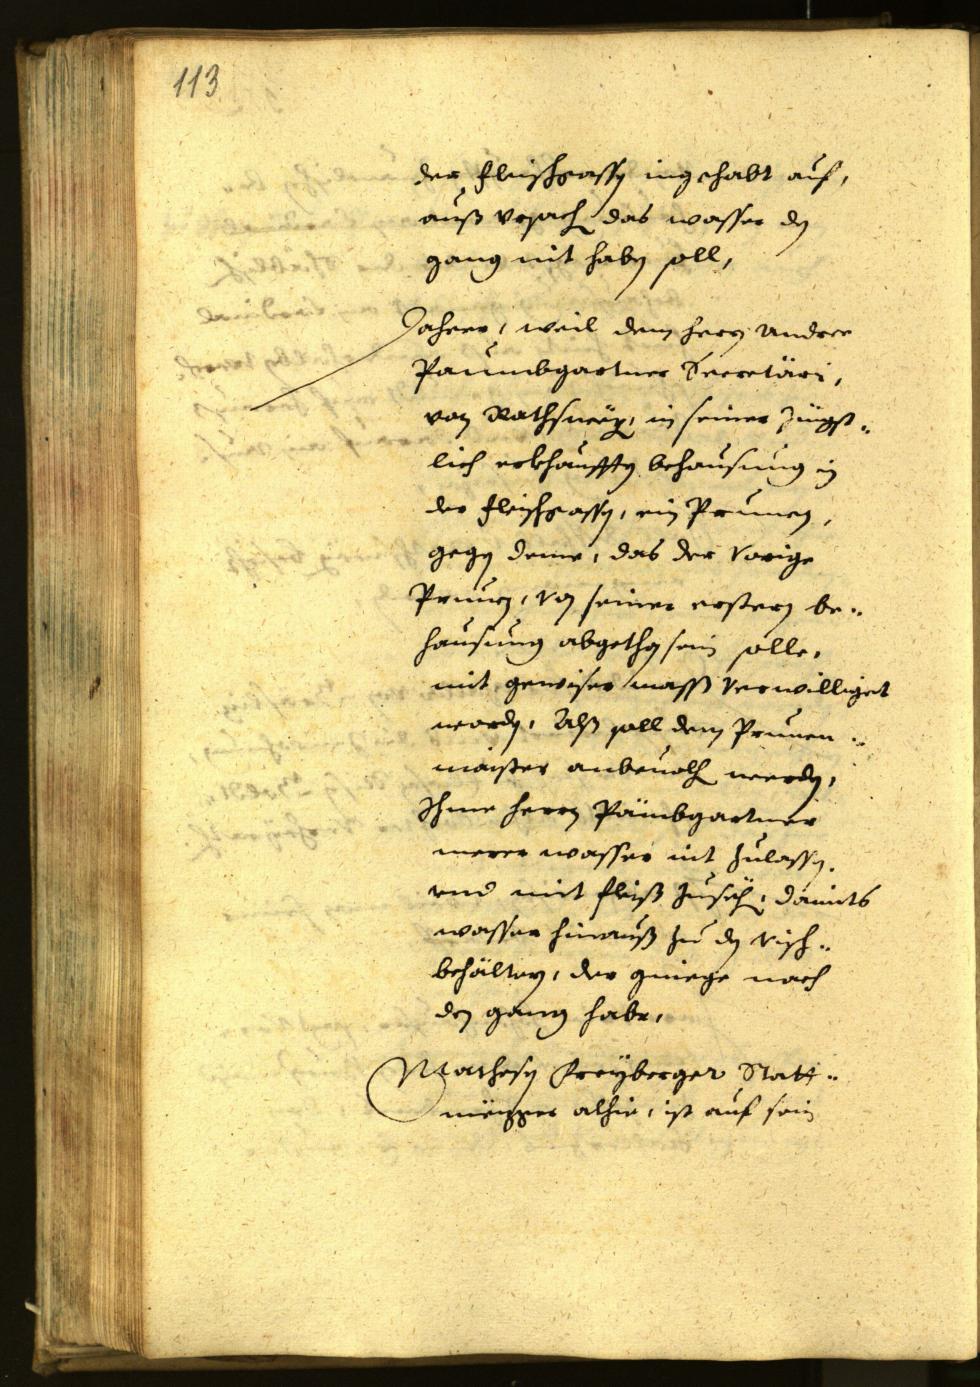 113
der fleischgassn ingehabt auf,
auß vrsach das wasser dn
gang nit habn soll,
Daherr, weil dem herrn Andree
Paumbgartner Secretäri,
von Raths wegen, in seiner Jüngst¬
lich erkhaufften behausung in
der fleischgassn, ein Prunen,
gegen deme, das der vorige
Prunen, von seiner erstern be¬
hausung abgethan sein solle,
mit gewiser mass verwilliget
worden, Alß soll dem Prunen¬
maister anbeuolhen werden,
Ihme herrn Päumbgartner
merer wasser nit zulassen,
vnd mit fleiß zusehen, damits
wasser hinauß zu den visch¬
behältern, der gnüege nach
den gang habe,
Mathesn Freyberger Statt¬
alhie, ist auf sein